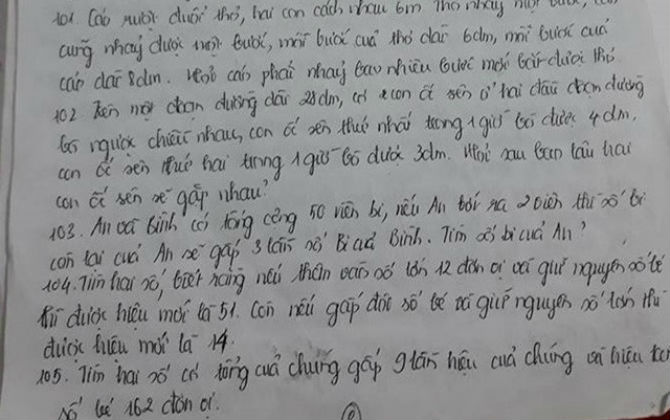 101. Cáo đuổi thỏ, hai con cách nhau 6m Thỏ nhảy một bước,
cũng nhảy được một bước, mỗi bước của thỏ dài 6dm, mỗi bước của
cáo dài 8dm. Hỏi cáo phải nhảy bao nhiêu bước mới bắt được thỏ
102 Trên một đoạn đường dài 28dm, có 2 con ốc sên ở hai đầu đoạn đường
bò ngược chiều nhau, con ốc sên thứ nhất trong 1 giờ bò được 4dm,
con ốc sên thứ hai trong 1 giờ bò được 3dm. Hỏi sau bao lâu hai
con ốc sên sẽ gặp nhau?
103. An và Bình có tổng cộng 50 viên bi, nếu An bớt ra 2 viên thì số bi
còn lại của An sẽ gấp 3 lần số Bi của Bình. Tìm số bi của An?
104. Tìm hai số, biết rằng nếu thêm vào số lớn 12 đơn vị và giữ nguyên số bé
thì được hiệu mới là 51. Còn nếu gấp đôi số bé và giữ nguyên số lớn thì
được hiệu mới là 14.
105. Tìm hai số có tổng của chúng gấp 9 lần hiệu của chúng và hiệu
số bé 162 đơn vị.